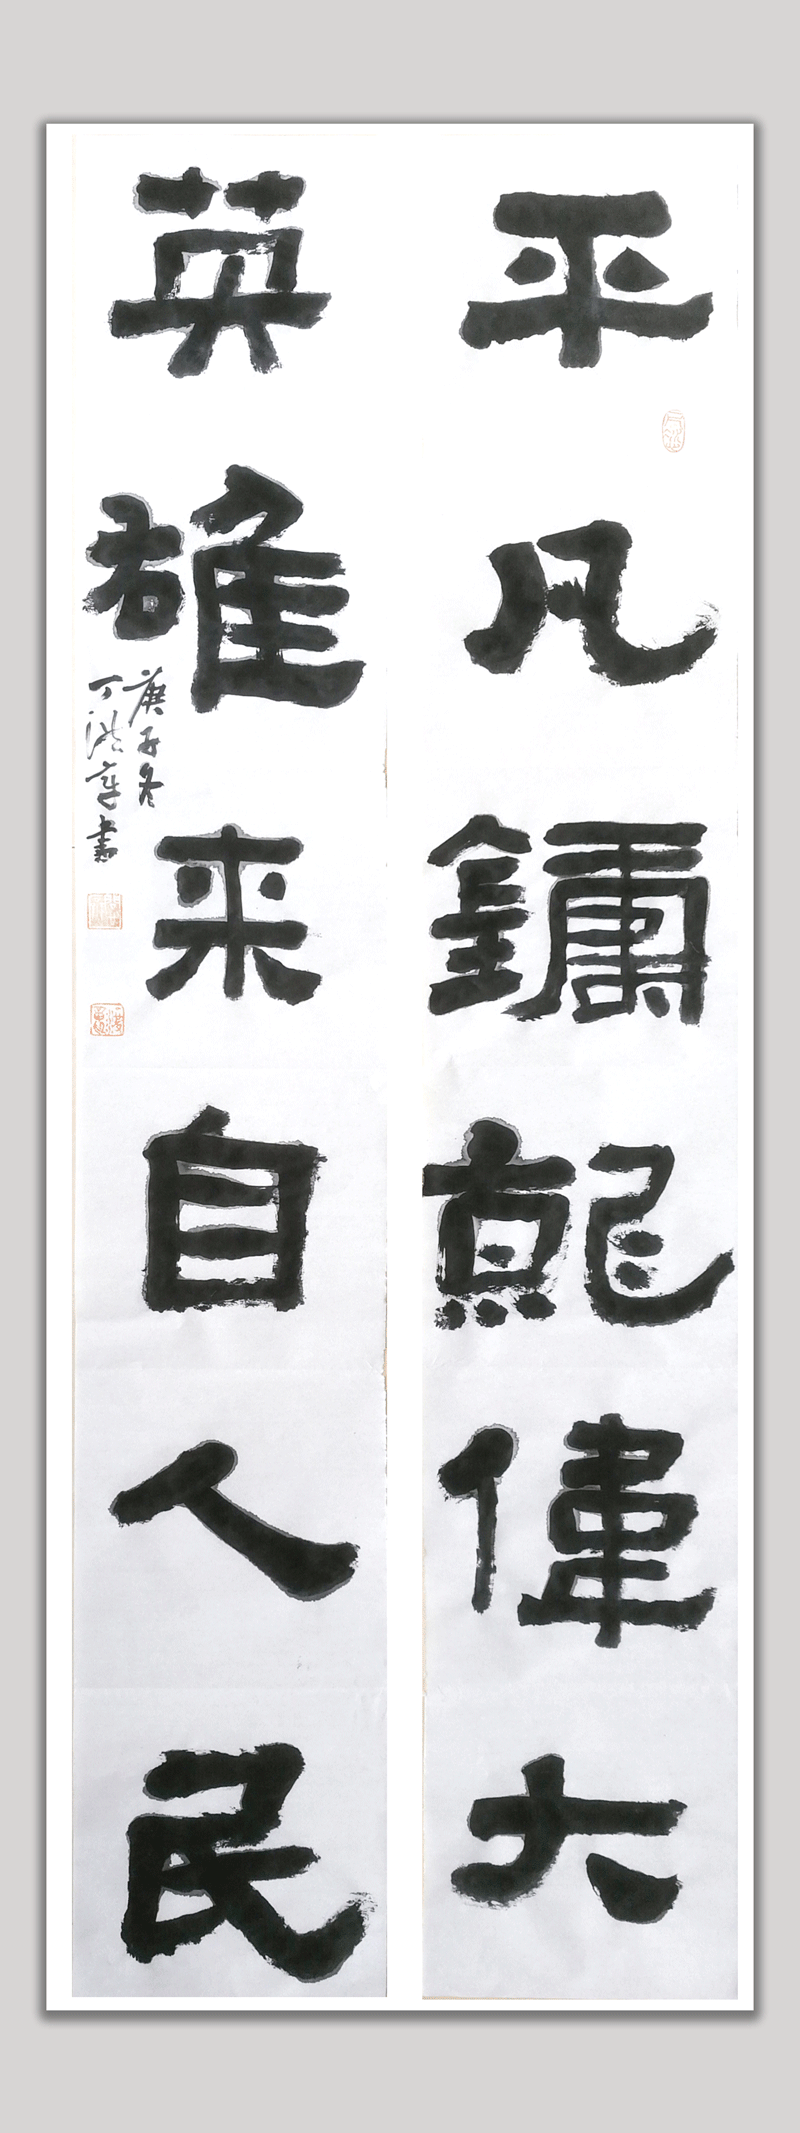 平凡鑄就偉大
英雄来自人民
庚子冬
丁洪章書